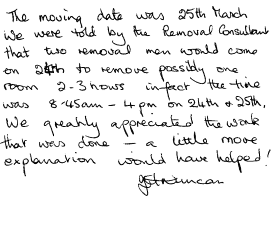 The moving date was 25th March
We were told by the Removal Consultant
that two removal men would come
on 24th to remove possibly one
room 2-3 hours infact the time
was 8.45am - 4pm on 24th & 25th,
We greatly appreciated the work
that was done - a little more
explanation would have helped!